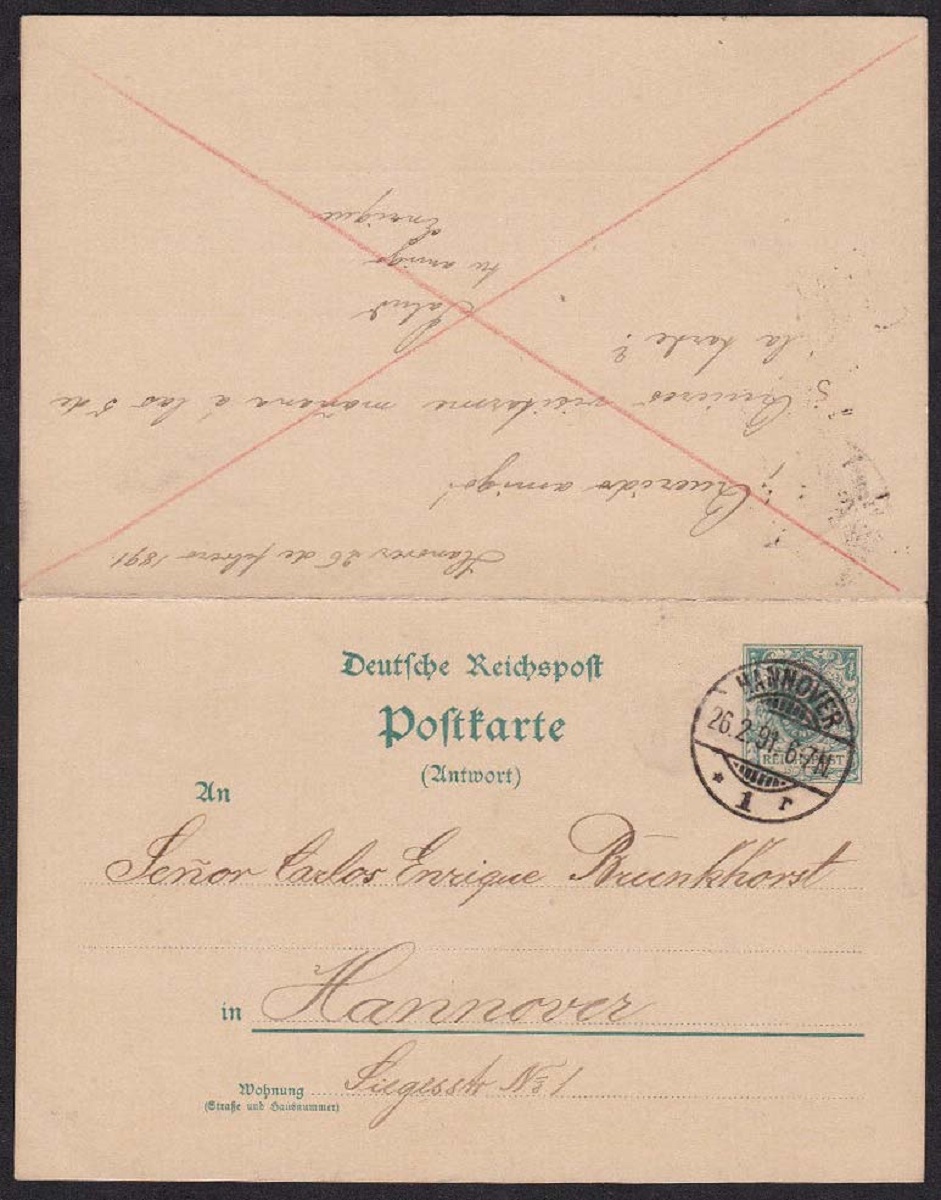 Hanover 26 de febrero 1891.
Querido amigo!
¿Quieres visitarme mañana á las 5 de
la tarde?
Salud
tu amigo
Enrique
Deutsche Reichspost
Postkarte
(Antwort)
HANNOVER
26.2.91.6-7N.
* 1 r
REICHSPOST
An
Señor Carlos Enrique Brunkhorst
in Hannover
Wohnung Siegesstr No 1
(Straße und Hausnummer)